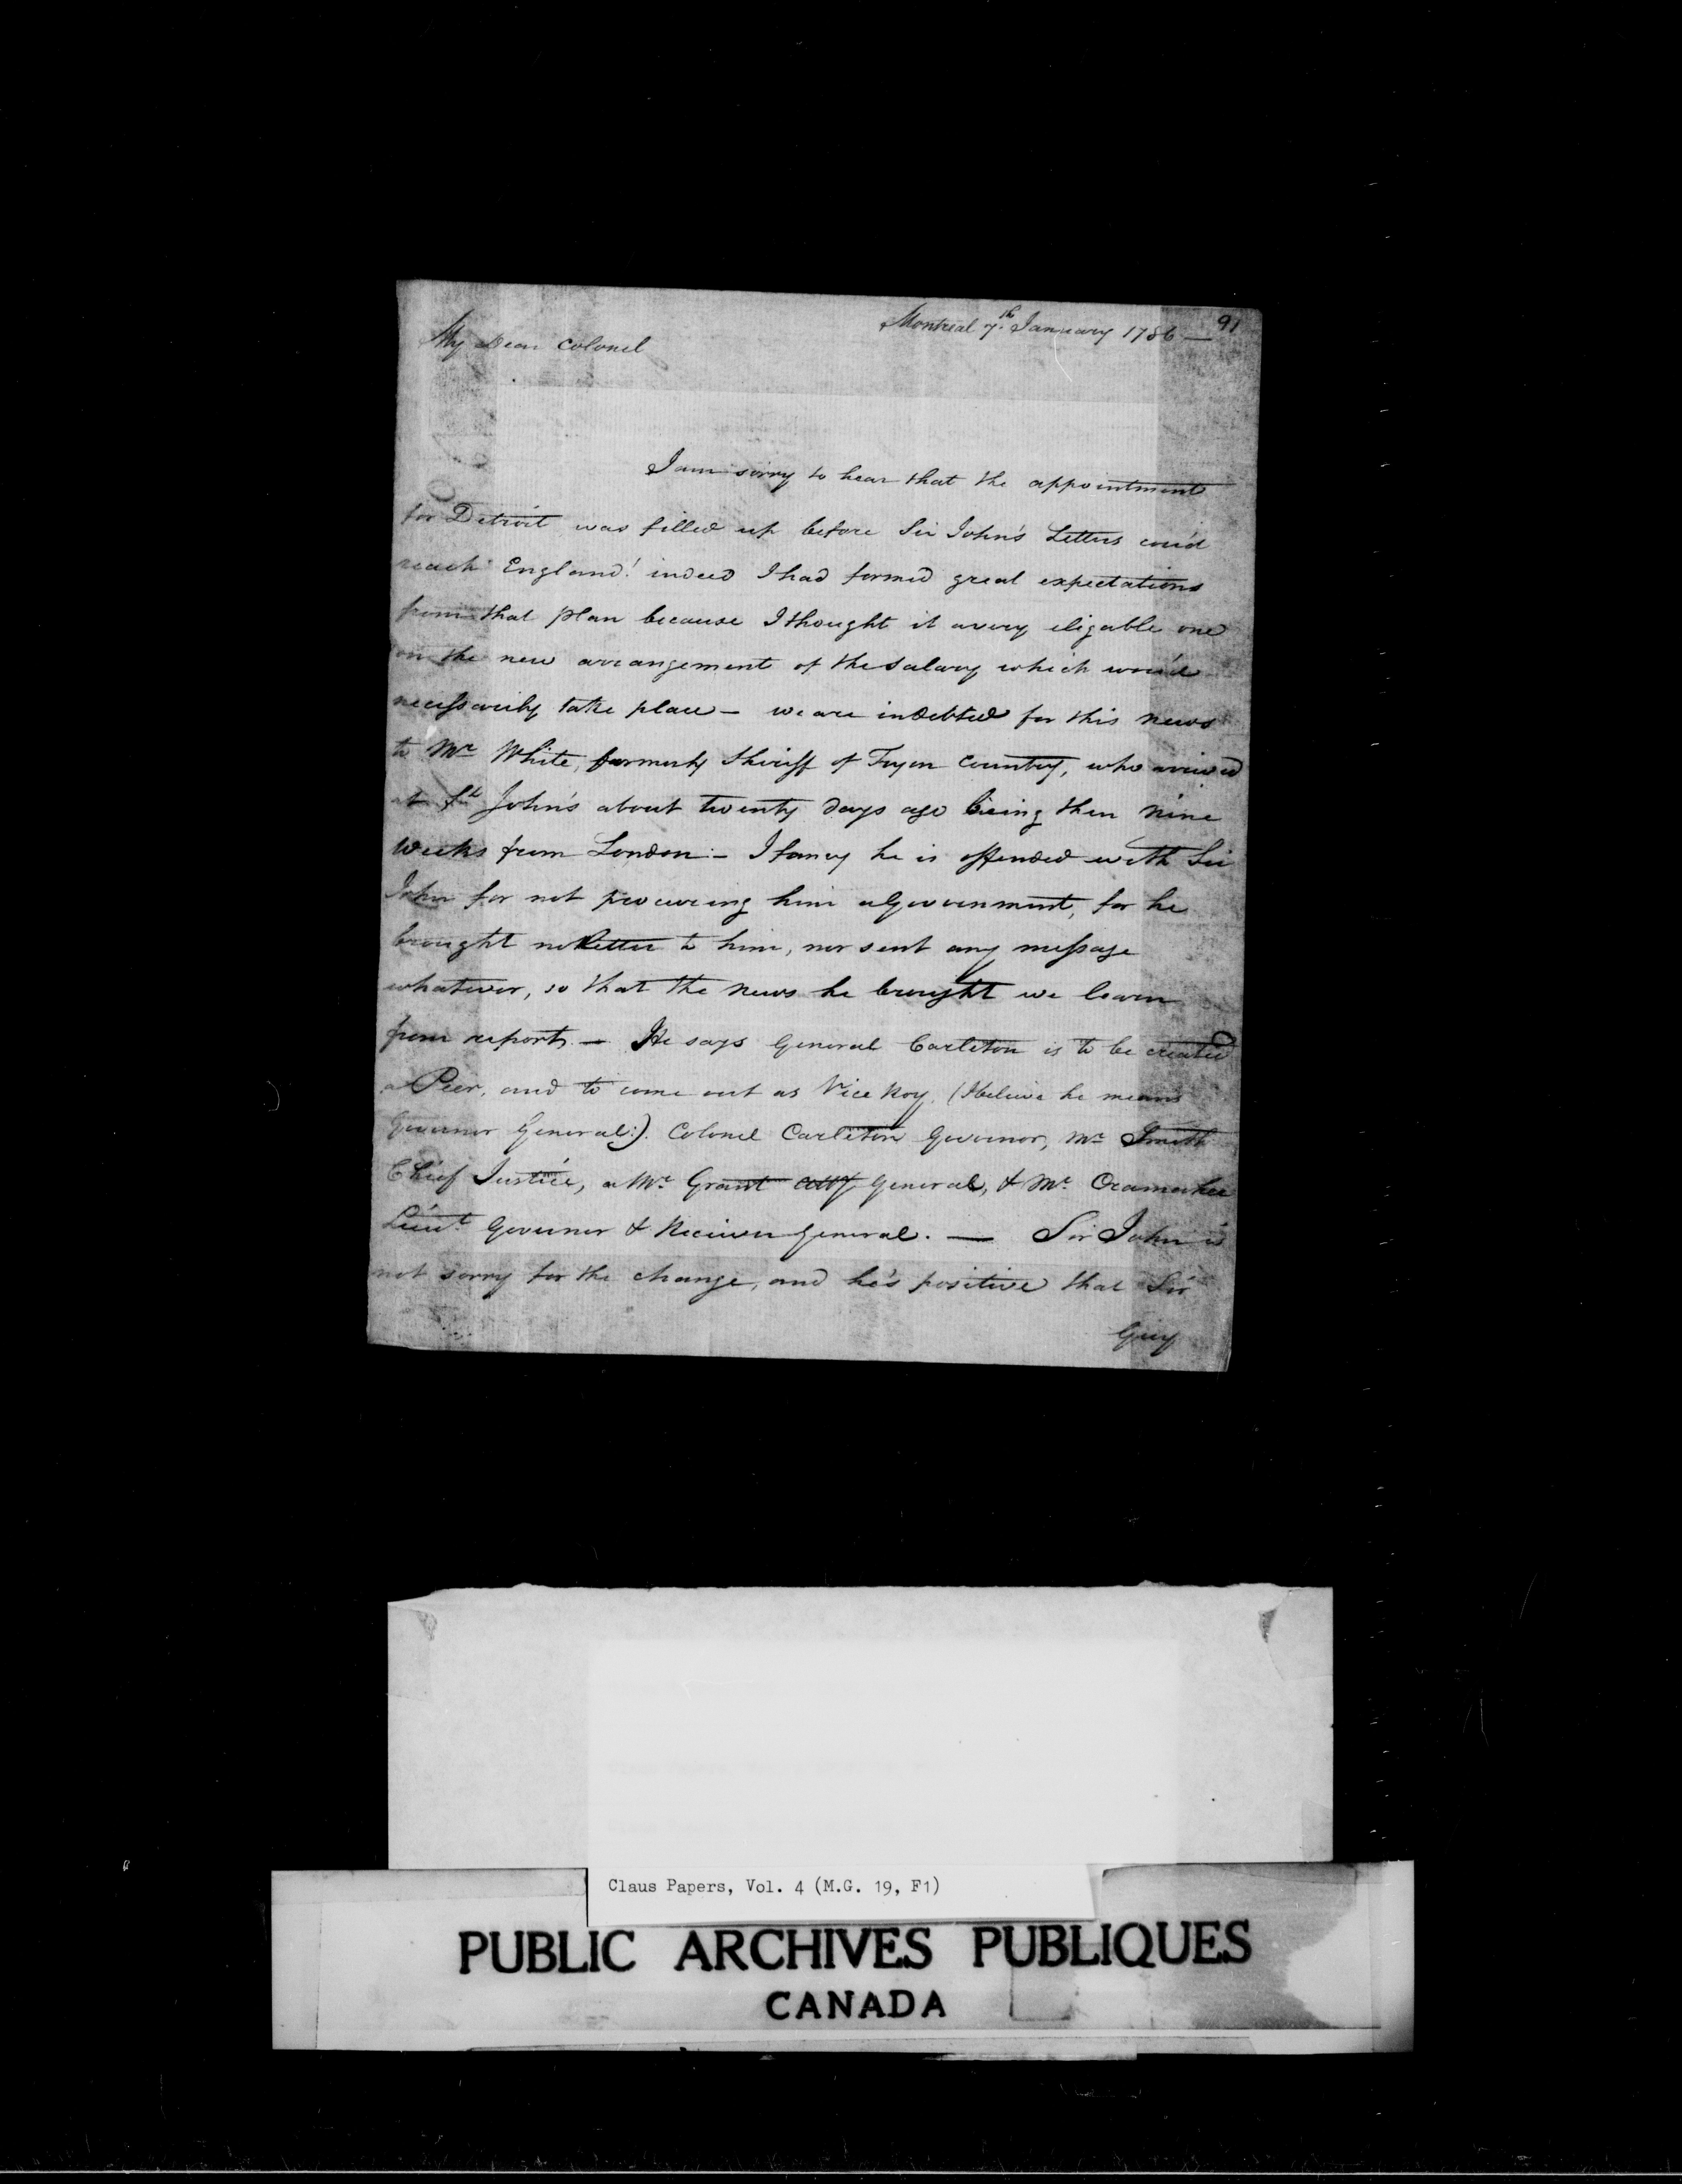 Montreal 7th January 1786 — 91
My Dear Colonel
I am sorry to hear that the appointment
for Detroit was filled up before Sir John's Letters cou'd
reach England! indeed I had formed great expectations
from that plan because I thought it a very eligable one
on the new arrangement of the salary which wou'd
necessarily take place — we are indebted for this news
to Mr White, formerly Sheriff of Tryon County, who arrived
at St John's about twenty days ago being then nine
weeks from London — I fancy he is offended with Sir
John for not procureing him a Government, for he
brought no Letter to him, nor sent any message
whatever, so that the news he brought we learn
from report — He says General Carleton is to be created
a Peer, and to come out as Vice Roy, (I beleive he means
Governor General:). Colonel Carleton Governor, Mr Smith
Chief Justice, a Mr Grant Atty General, & Mr Cramahee
Lieut Governor & Receiver General. — Sir John is
not sorry for the change, and he's positive that Sir
Guy
Claus Papers, Vol. 4 (M.G. 19, F1)
PUBLIC ARCHIVES PUBLIQUES
CANADA